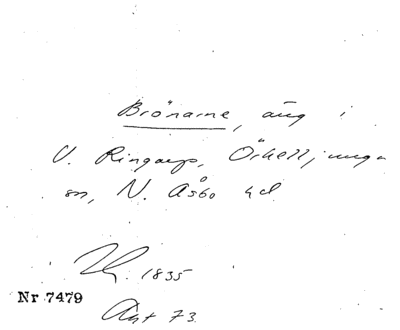 Brönarne, äng i
V. Ringarp, Örkelljunga
sn, N. Åsbo hd
1835
Nr 7479
Akt 73